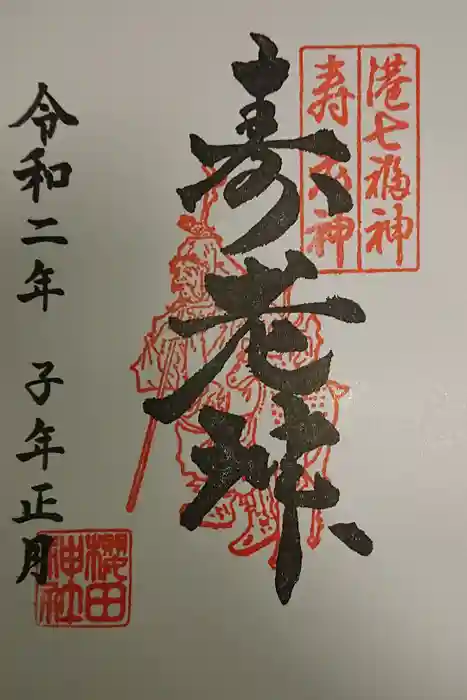 港七福神
寿老神
寿老神
令和二年 子年正月
櫻田
神社